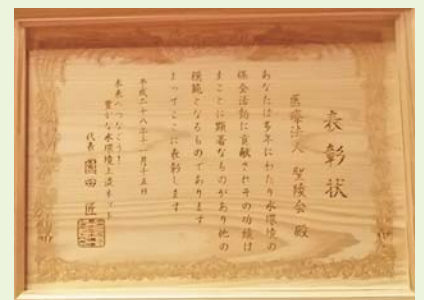 表彰状
医療法人 聖陵会 殿
あなたは多年にわたり水環境の
保全活動に貢献されその功績は
まことに顕著なものがあり他の
模範となるものであります
よってここに表彰します
平成二十八年十一月十五日
未来へつなごう!
豊かな水環境上流ネット
代表 園田 匠